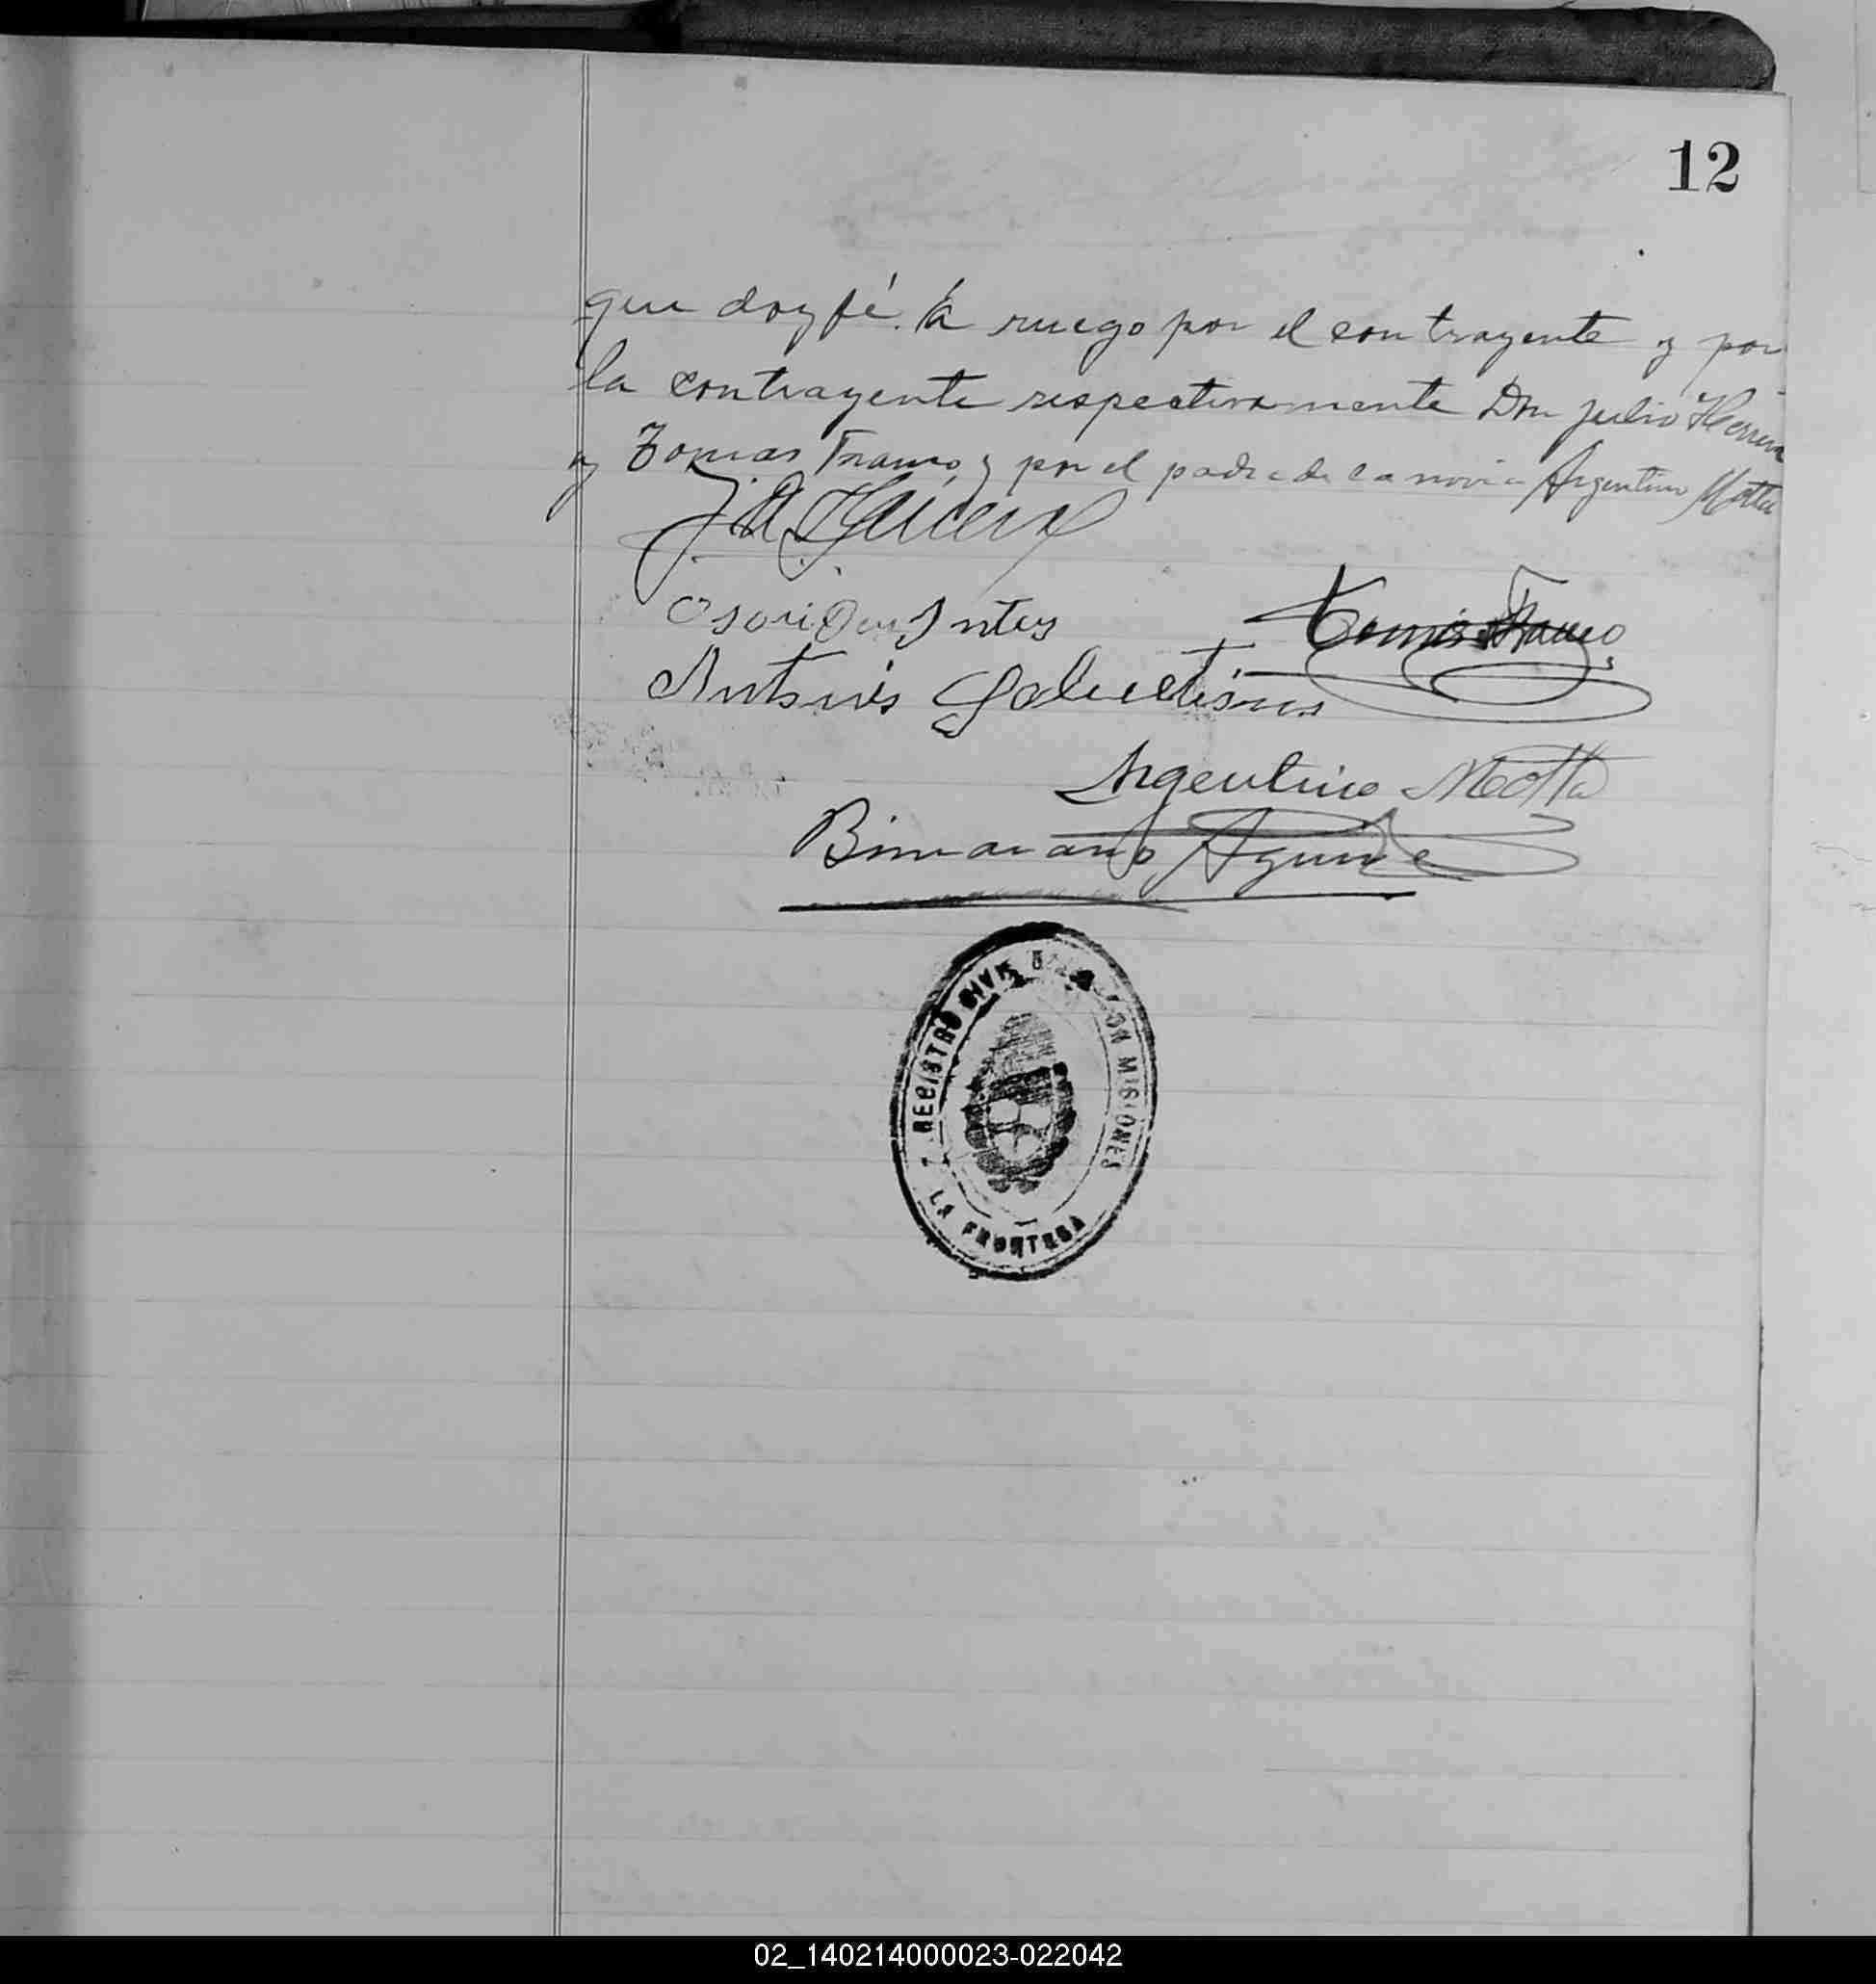 12
que doy fé. á ruego por el contrayente y por
la contrayente respectivamente Don Julio Herrera
y Tomas Franco y por el padre de la novia Argentino Motta
J. A. Herrera
Tomás Franco
Antonio
Argentino Motta
Aguirre
REGISTRO CIVIL MISIONES
LA FRONTERA
02_140214000023-022042